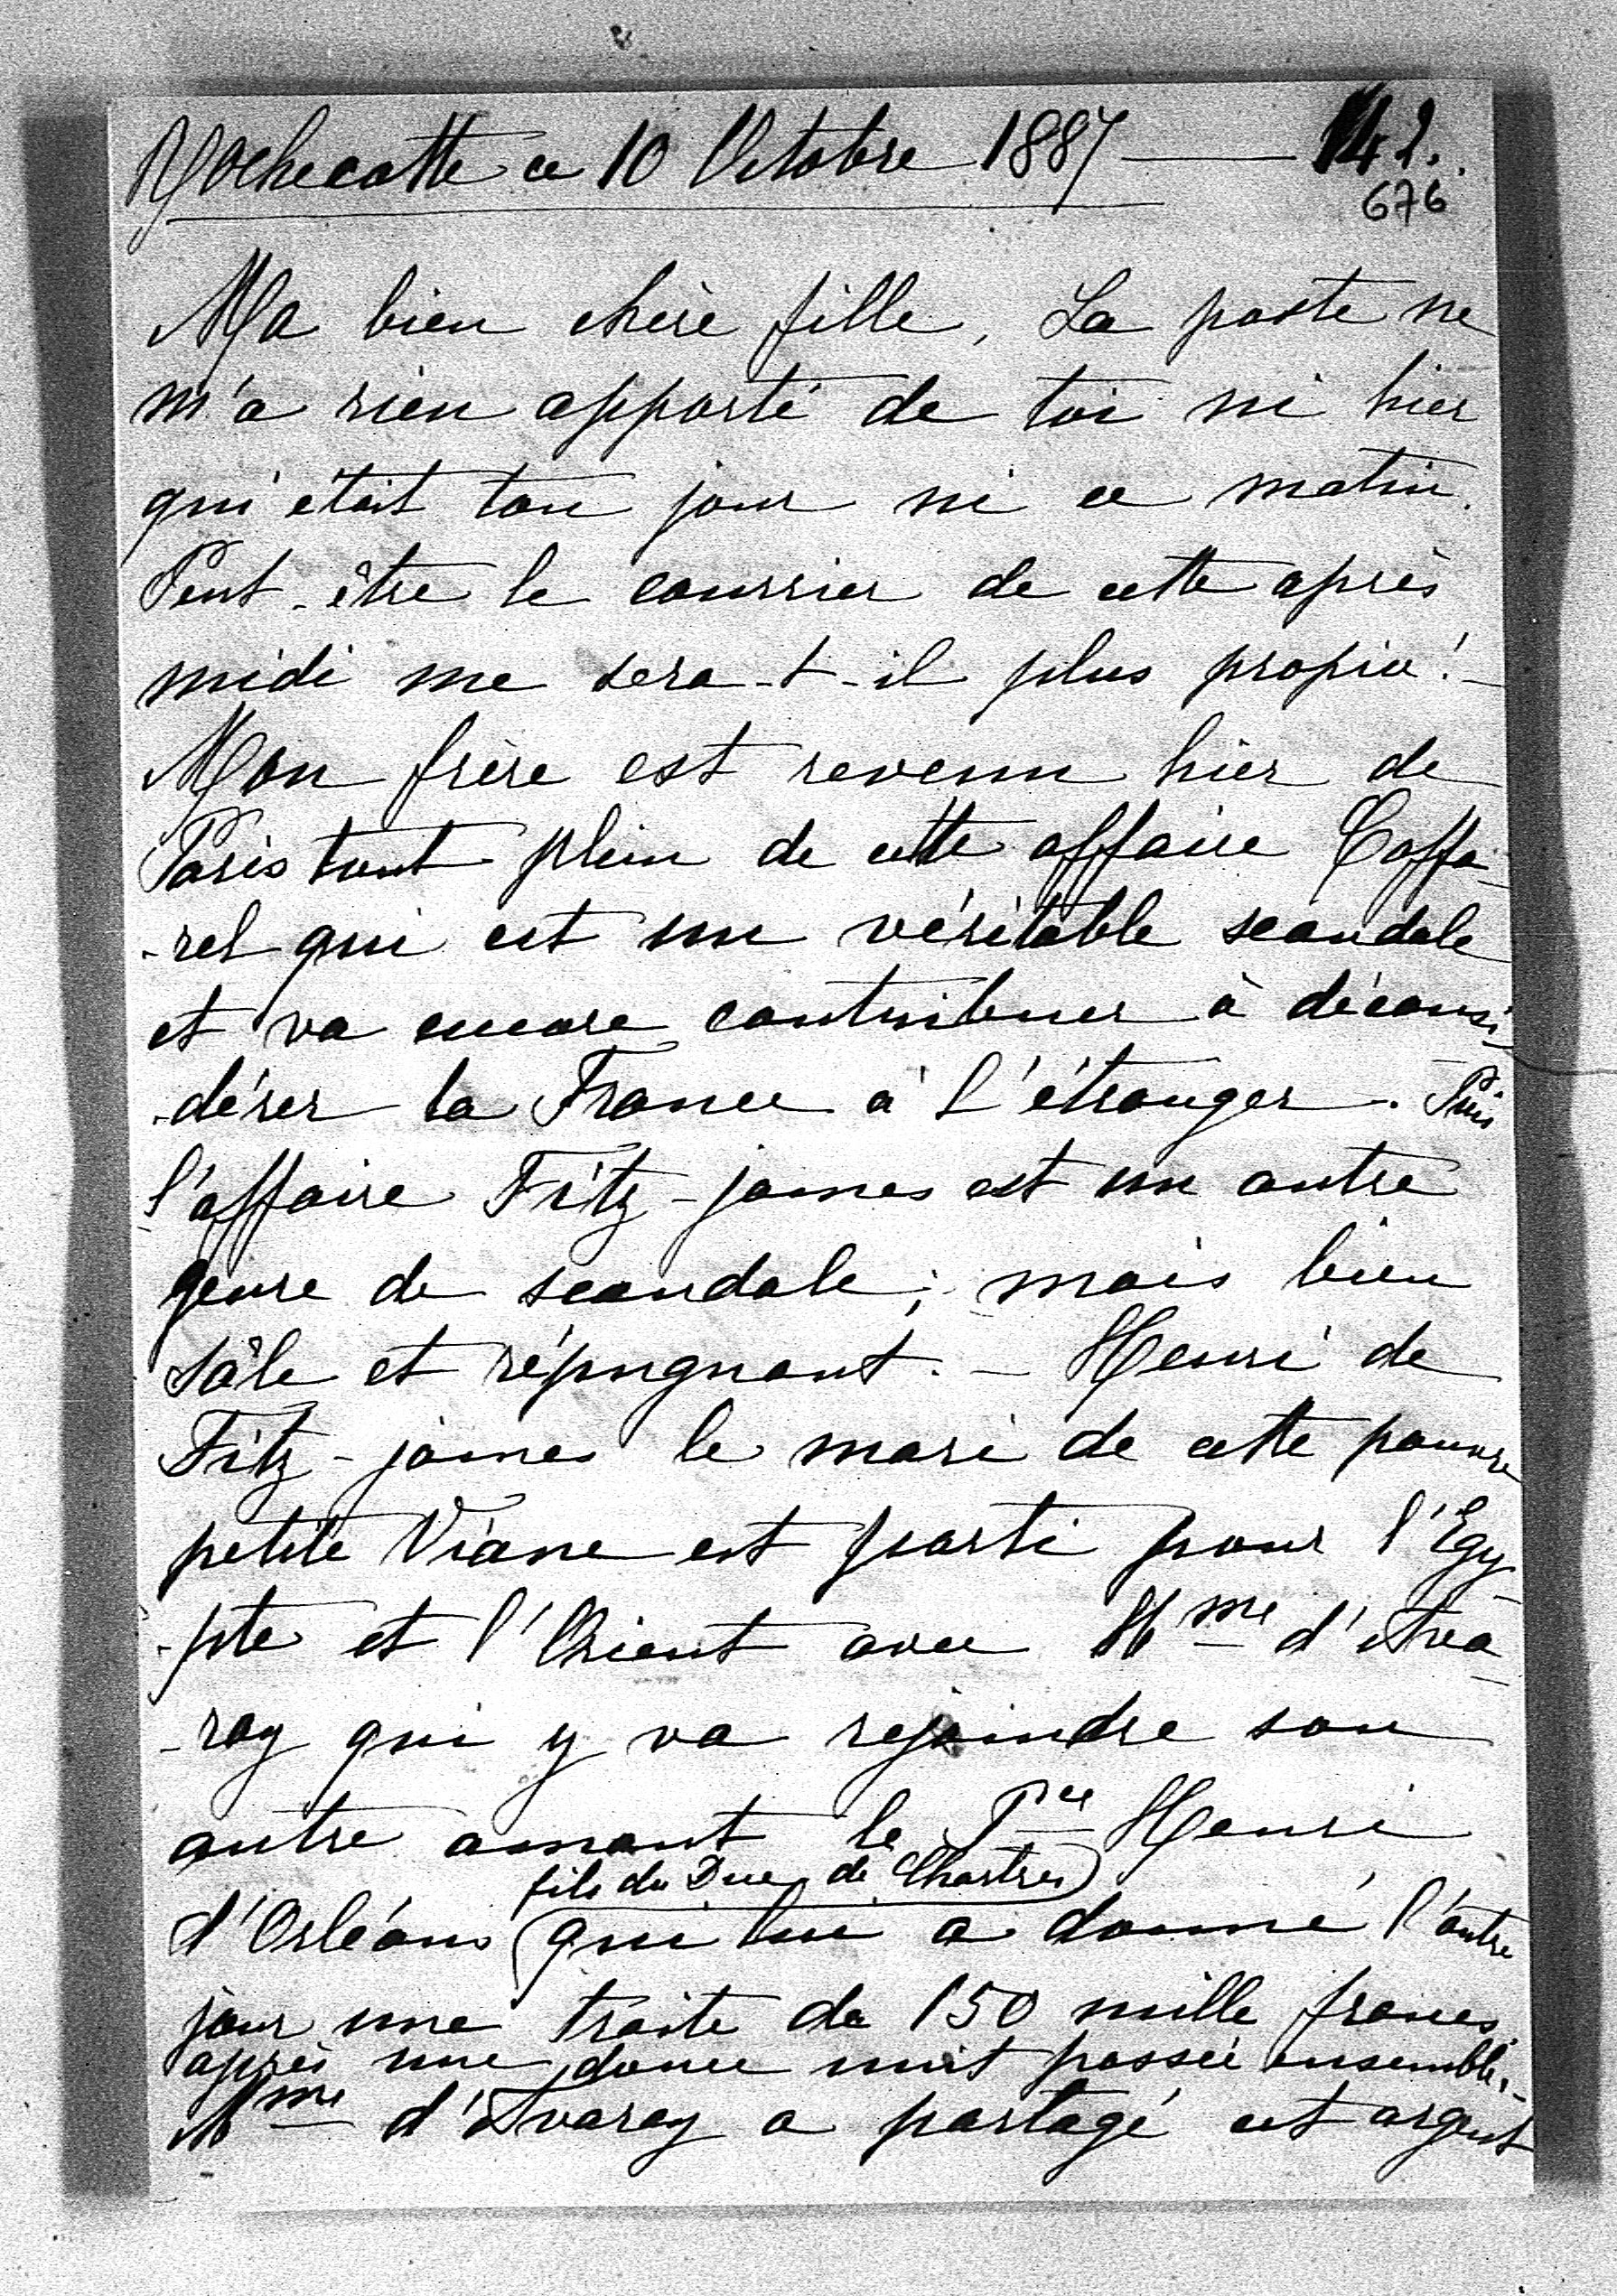 Rochecotte ce 10 Octobre 1887 — 142.
676
Ma bien chère fille, La poste ne
m'a rien apporté de toi ni hier
qui était ton jour ni ce matin.
Peut-être le courrier de cette après
midi me sera-t-il plus propice! -
Mon frère est revenu hier de
Paris tout plein de cette affaire Caffa-
-rel qui est un véritable scandale
et va encore contribuer à déconsi-
-dérer la France à l'étranger. Puis
l'affaire Fitz-james est un autre
genre de scandale; mais bien
sâle et répugnant. - Henri de
Fitz-james le mari de cette pauvre
petite Viane est parti pour l'Egy-
-pte et l'Orient avec Mme d'Ava-
-ray qui y va rejoindre son
autre amant le Pce Henri
fils du Duc de Chartres)
d'Orléans (qui lui a donné l'autre
jour une traite de 150 mille francs
après une douce nuit passée ensemble. -
Mme d'Avaray a partagé cet argent